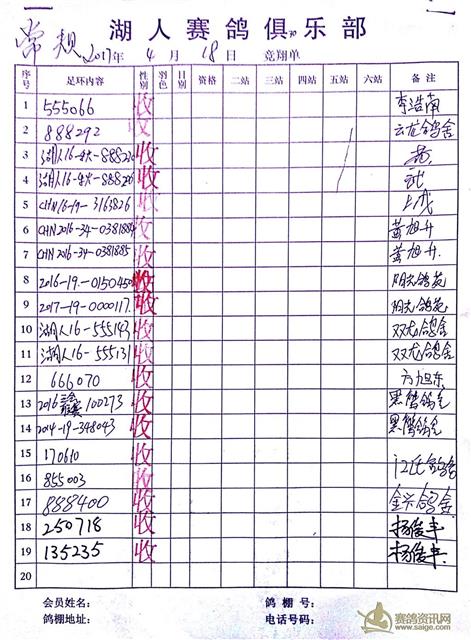 湖人赛鸽俱乐部
常规 2017年 4月 18日 竞翔单
序号 足环内容 性别 羽色 日别 资格 二站 三站 四站 五站 六站 备注
1 555066 收 李浩南
2 888292 收 云龙鸽舍
3 湖人16- 收
4 湖人16- 收
5 CHN16-19-3163826 收
6 CHN2016-34-0381884 收 黄旭升
7 CHN2016-34-0381885 收 黄旭升
8 2016-19-0150450 收 阳光鸽苑
9 2017-19-0000117 收 阳光鸽苑
10 湖人16-555143 收 双龙鸽舍
11 湖人16-555131 收 双龙鸽舍
12 666070 收 方旭东
13 2016 100273 收 黑蟹鸽舍
14 2014-19-348043 收 黑蟹鸽舍
15 170610 收 江氏鸽舍
16 855003 收
17 888400 收 鸽舍
18 250718 收 杨俊丰
19 135235 收 杨俊丰
20
会员姓名: 鸽棚号:
鸽棚地址: 电话号码:
赛鸽资讯网
www.saige.com